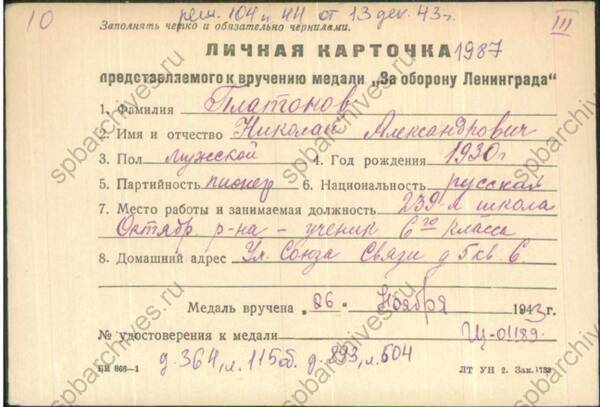 10 реш. 104 и 44 от 13 дек. 43 г. III
Заполнять четко и обязательно чернилами.
ЛИЧНАЯ КАРТОЧКА 1987
представляемого к вручению медали „За оборону Ленинграда"
1. Фамилия Платонов
2. Имя и отчество Николай Александрович
3. Пол мужской 4. Год рождения 1930 г
5. Партийность пионер 6. Национальность русская
7. Место работы и занимаемая должность 239-я школа
Октябр. р-на - ученик 6го класса
8. Домашний адрес Ул. Союза Связи д 5 кв 6
Медаль вручена „26" Ноября 1943 г.
№ удостоверения к медали Щ-01189.
д 364, л. 115об. д. 893, л. 504
БИ 866—1 ЛТ УП 2. Зак. 1733
spbarchives.ru
spbarchives.ru
spbarchives.ru
spbarchives.ru
spbarchives.ru
spbarchives.ru